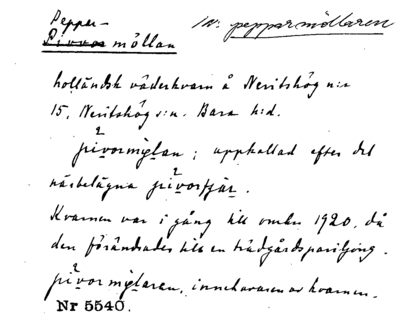 Pepper-
Pivvos möllan
1 v. pepparmöllaren
holländsk väderkvarn å Nevitshög n:r
15, Nevitshög s:n. Bara h:d.
pivormø̨lan; uppkallad efter det
närbelägna pivorsjär.
Kvarnen var i gång till omkr 1920, då
den förändrades till en trädgårdspaviljong.
pivormølaren, innehavaren av kvarnen.
Nr 5540.